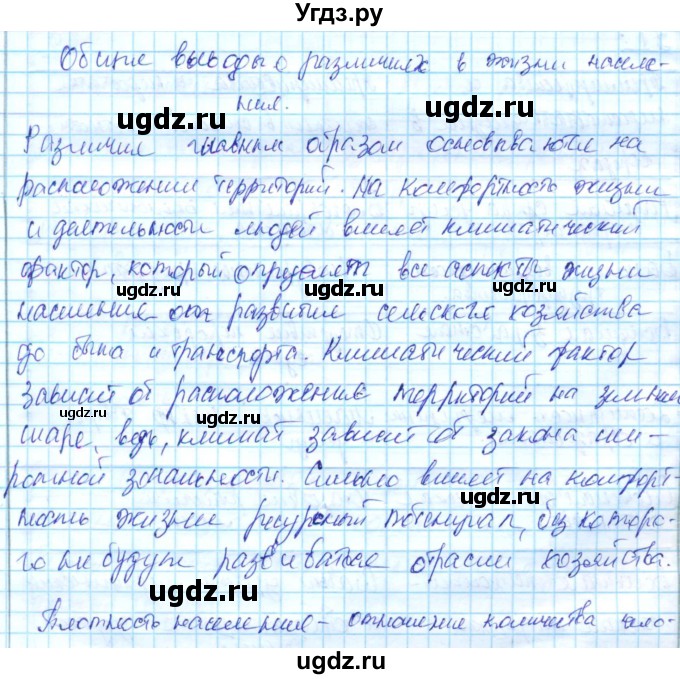 Угдз.ру
Общие выводы о различиях в жизни населе-
ния.
Различия главным образом основываются на
расположении территорий. На комфортность жизни
и деятельности людей влияет климатический
фактор, который определяет все аспекты жизни
населения от развития сельского хозяйства
до быта и транспорта. Климатический фактор
зависит от расположения территорий на земном
шаре, ведь, климат зависит от закона ши-
ротной зональности. Сильно влияет на комфорт-
ность жизни ресурсный потенциал, без которо-
го не будут развиваться отрасли хозяйства.
Плотность населения - отношение количества чело-
ugdz.ru
ugdz.ru
ugdz.ru
ugdz.ru
ugdz.ru
ugdz.ru
ugdz.ru
ugdz.ru
ugdz.ru
ugdz.ru
ugdz.ru
ugdz.ru